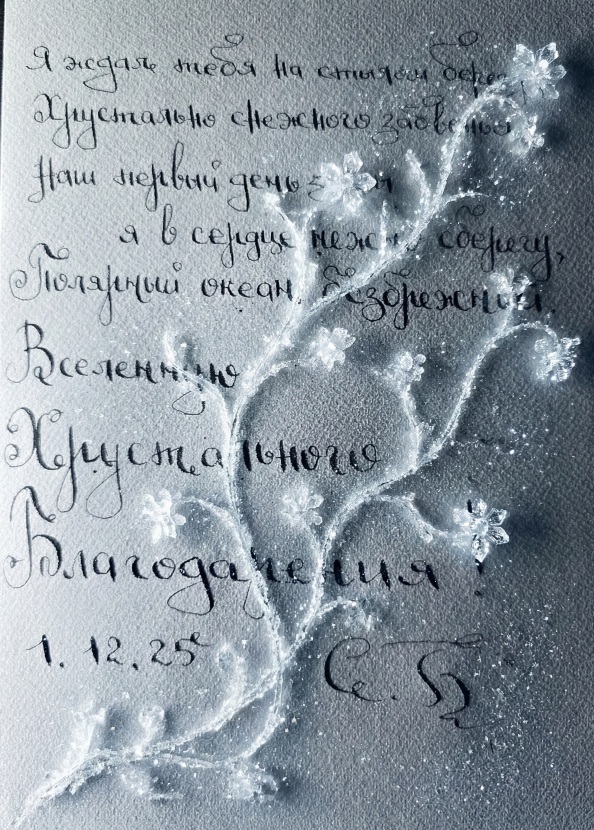 Я ждал тебя на стылом
Хрустально снежного забвенья
Наш первый день
я в сердце нежно сберегу,
Полярный океан безбрежный.
Вселенную
Хрустального
Благодарения!
1.12.25г
Се. Б